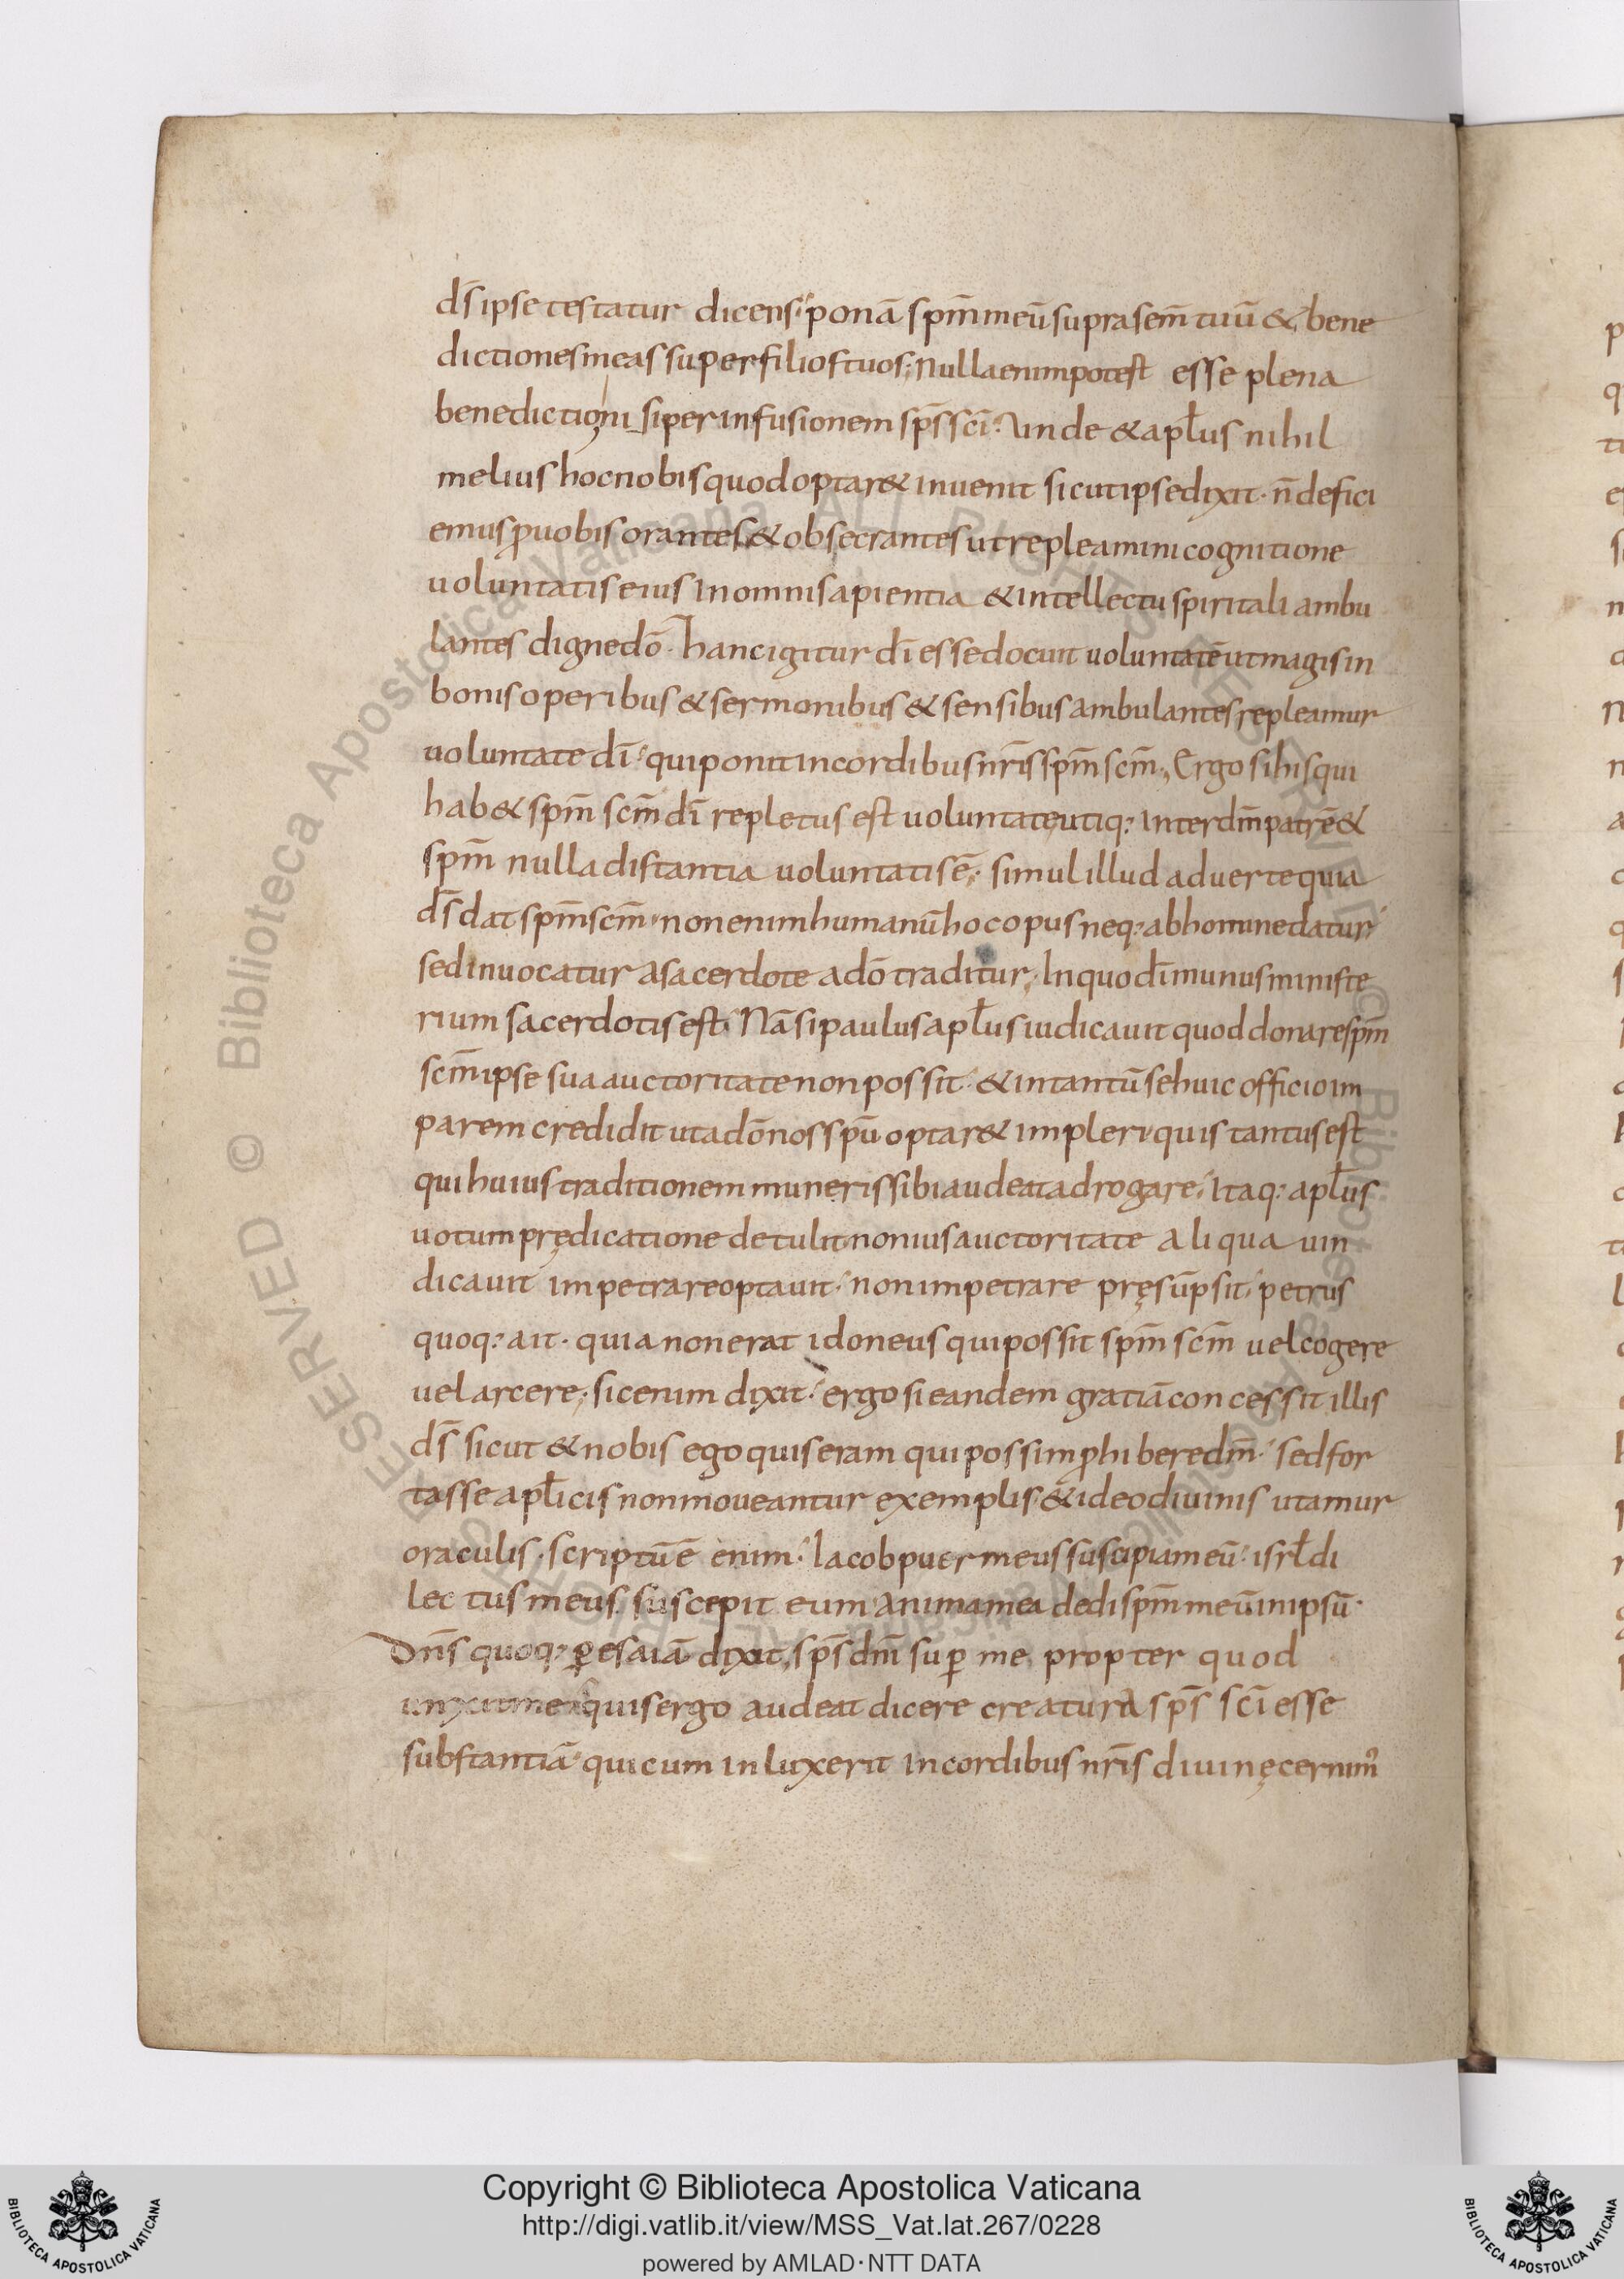 ds̄ ipse testatur dicens; ponā spm̄ meū supra sem̄ tuū & bene
dictiones meas super filios tuos; Nulla enim potest esse plena
benedictioni siper infusionem sps̄ sc̄i. Unde & apl̄us nihil
melius hoc nobis quod optar& inuenit sicut ipse dixit. n̄ defici
emus ꝓ uobis orantes & obsecrantes ut repleamini cognitione
uoluntatis eius In omni sapientia & intellectu spiritali ambu
lantes digne dō. hanc igitur dī esse docuit uoluntatē ut magis in
bonis operibus & sermonibus & sensibus ambulantes repleamur
uoluntate dī; qui ponit in cordibus nr̄is spm̄ scm̄; Ergo si his qui
hab& spm̄ scm̄ dī repletus est uoluntate utiq; Inter dm̄ patrē &
spm̄ nulla distantia uoluntatis ē; simul illud aduerte quia
ds̄ dat spm̄ scm̄; non enim humanū hoc opus neq; ab homine datur;
sed inuocatur a sacerdote a dō traditur; In quo dī munus ministe
rium sacerdotis est; Nā si paulus apl̄us iudicauit quod donare spm̄
scm̄ ipse sua auctoritate non possit; & in tantū se huic officio im
parem credidit ut a dō nos spū optar& impleri; quis tantus est
qui huius traditionem muneris sibi audeat adrogare; Itaq; apl̄us
uotum prędicatione detulit non ius auctoritate aliqua uin
dicauit impetrare optauit; non impetrare pręsūpsit; petrus
quoq; ait. quia non erat idoneus qui possit spm̄ scm̄ uel cogere
uel arcere; sic enim dixit; ergo si eandem gratiā concessit illis
ds̄ sicut & nobis ego quis eram qui possim ꝓhibere dm̄; sed for
tasse apl̄icis non moueantur exemplis; & ideo diuinis utamur
oraculis; scriptū ē enim; Iacob puer meus suscipiam eū; isrl̄ di
lectus meus suscepit eum anima mea dedi spm̄ meū in ipsū.
Dns̄ quoq; ꝑ esaiā dixit; sps̄ dm̄ suꝑ me propter quod
unxit me; quis ergo audeat dicere creaturā sps̄ sc̄i esse
substantiā; qui cum inluxerit in cordibus nr̄is diuinę cernim᾿
Copyright © Biblioteca Apostolica Vaticana
http://digi.vatlib.it/view/MSS_Vat.lat.267/0228
powered by AMLAD·NTT DATA
BIBLIOTECA APOSTOLICA VATICANA
BIBLIOTECA APOSTOLICA VATICANA